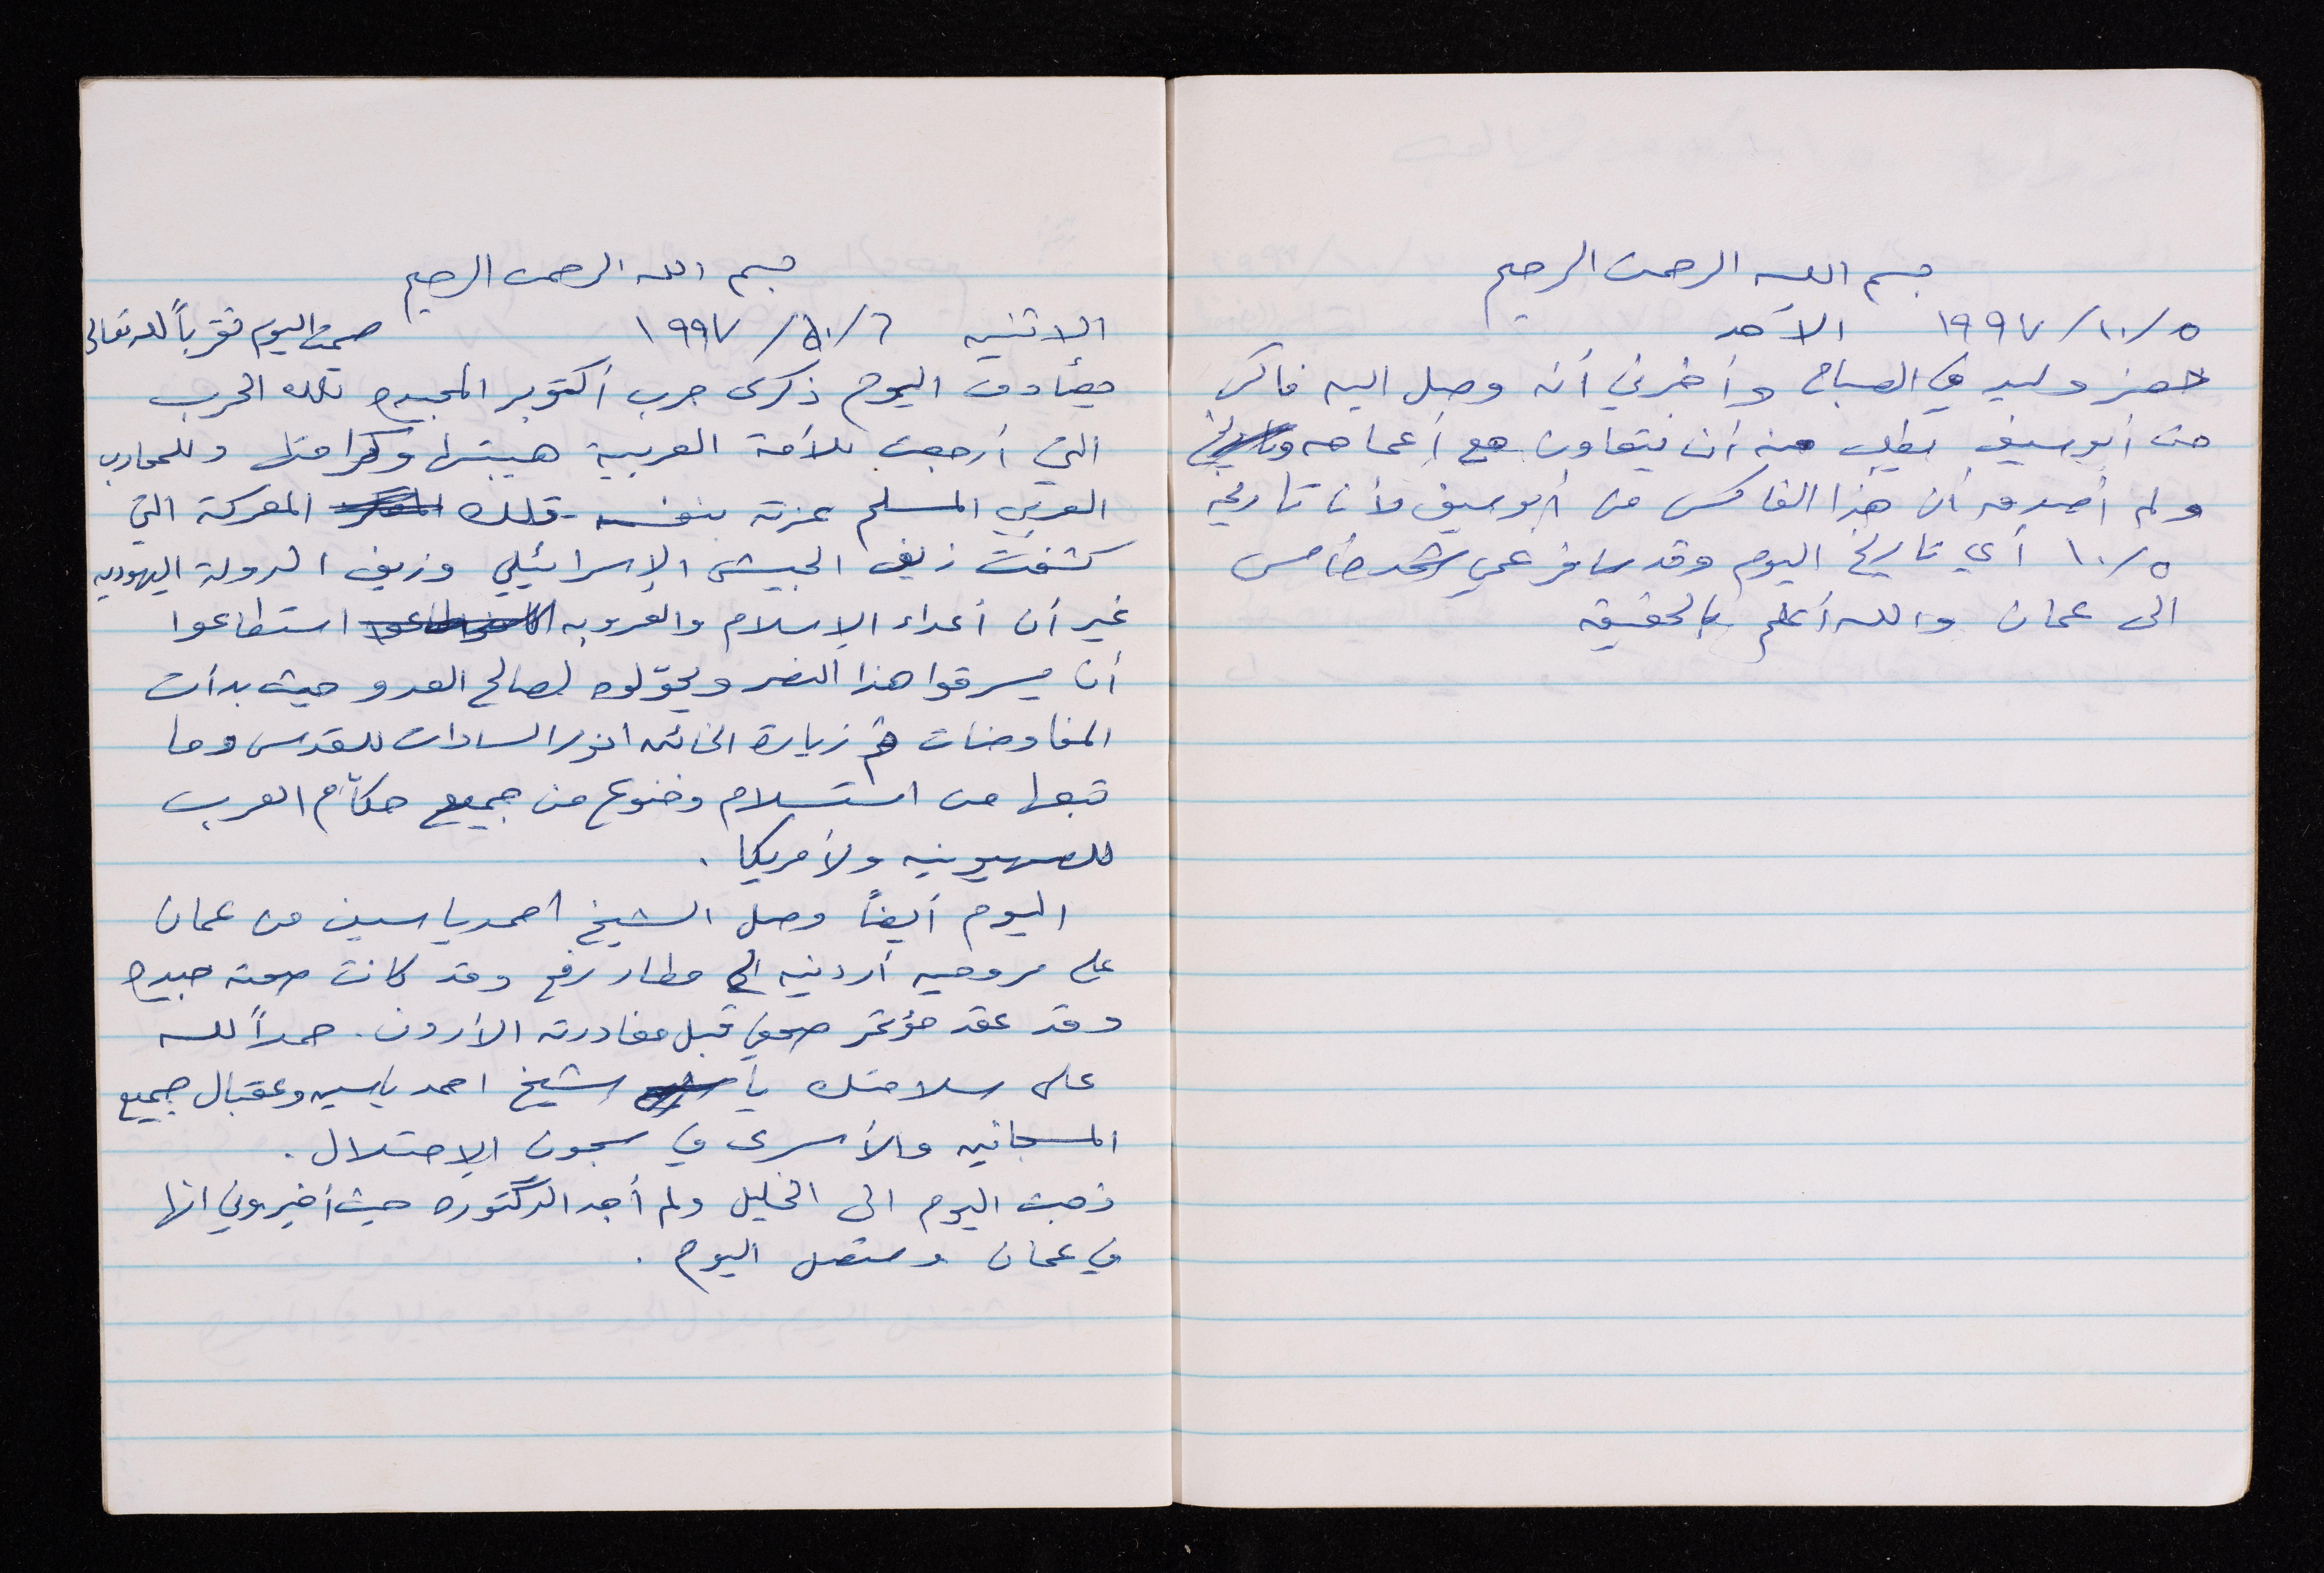 بسم الله الرحمن الرحيم
١٩٩٧/١٠/٥ الأحد
حضر وليد في الصباح وأخبرني أنه وصل اليه فاكس
من أبو سيف يطلب منه أن يتعاون مع أعمامه
ولم أصدق أن هذا الفاكس من أبو سيف لأن تاريخه
١٠/٥ أي تاريخ اليوم وقد سافر عمي
الى عمان والله أعلم بالحقيقة
بسم الله الرحمن الرحيم
الاثنين ١٩٩٧/١٠/٦ صمت اليوم تقرباً لله تعالى
يصادف اليوم ذكرى حرب أكتوبر المجيده تلك الحرب
التي أرجعت للأمة العربية هيبتها وكرامتها وللمحارب
العربي المسلم عزته بنفسه - تلك المعركة التي
كشفت زيف الجيش الإسرائيلي وزيف الدولة اليهوديه
غير أن أعداء الإسلام والعروبه استطاعوا
أن يسرقوا هذا النصر ويحوّلوه لصالح العدو حيث بدأت
المفاوضات ثم زيارة الخائن انور السادات للقدس وما
تبعها من استسلام وخنوع من جميع حكّام العرب
للصهيونيه ولأمريكا .
اليوم أيضاً وصل الشيخ احمد ياسين من عمان
على مروحيه أردنيه الى مطار رفح وقد كانت صحته جيده
وقد عقد مؤتمر صحفي قبل مغادرته الأردن . حمداً لله
على سلامتك يا شيخ احمد ياسين وعقبال جميع
المساجين والأسرى في سجون الإحتلال .
ذهبت اليوم الى الخليل ولم أجد الدكتوره حيث أخبروني انها
في عمان وستصل اليوم .